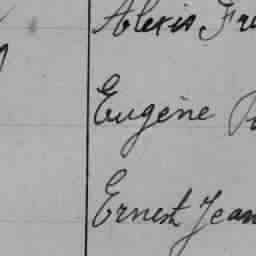 Alexis
Eugène
Ernest Jean